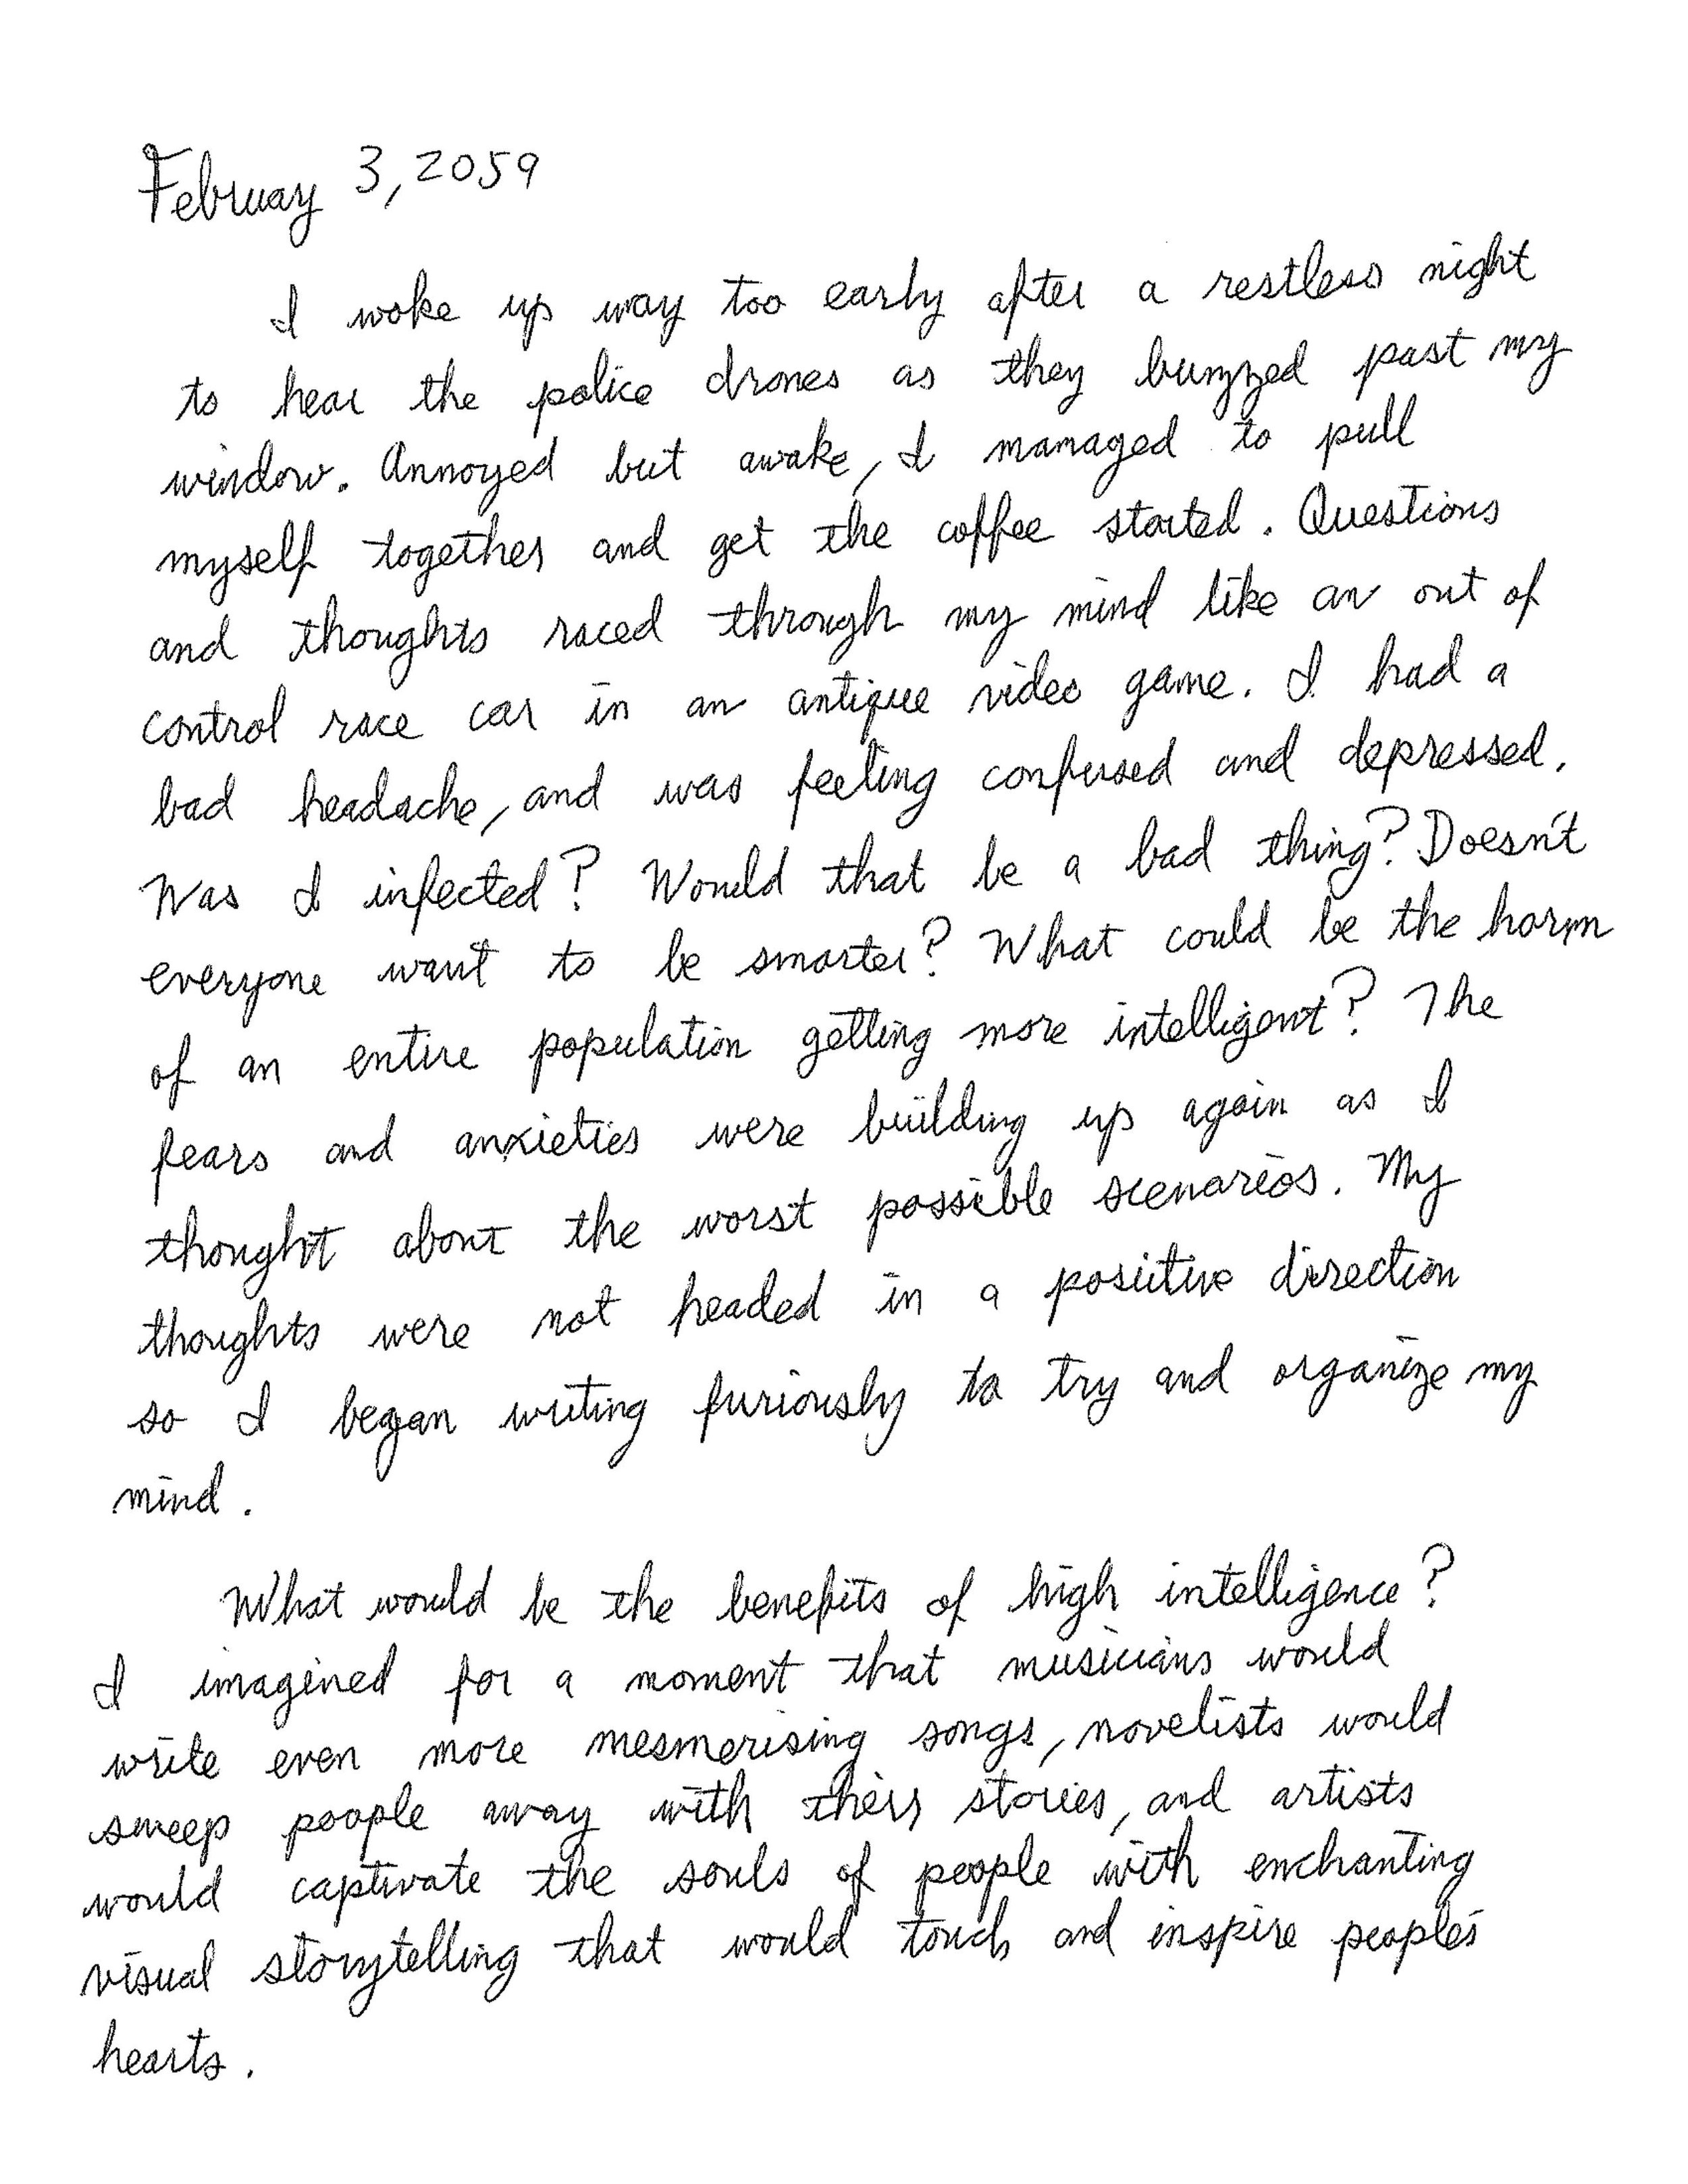 February 3, 2059
I woke up way too early after a restless night
to hear the police drones as they buzzed past my
window. Annoyed but awake, I managed to pull
myself together and get the coffee started. Questions
and thoughts raced through my mind like an out of
control race car in an antique video game. I had a
bad headache, and was feeling confused and depressed.
Was I infected? Would that be a bad thing? Doesn't
everyone want to be smarter? What could be the harm
of an entire population getting more intelligent? The
fears and anxieties were building up again as I
thought about the worst possible scenarios. My
thoughts were not headed in a positive direction
so I began writing furiously to try and organize my
mind.
What would be the benefits of high intelligence?
I imagined for a moment that musicians would
write even more mesmerising songs, novelists would
sweep people away with their stories, and artists
would captivate the souls of people with enchanting
visual storytelling that would touch and inspire people's
hearts.